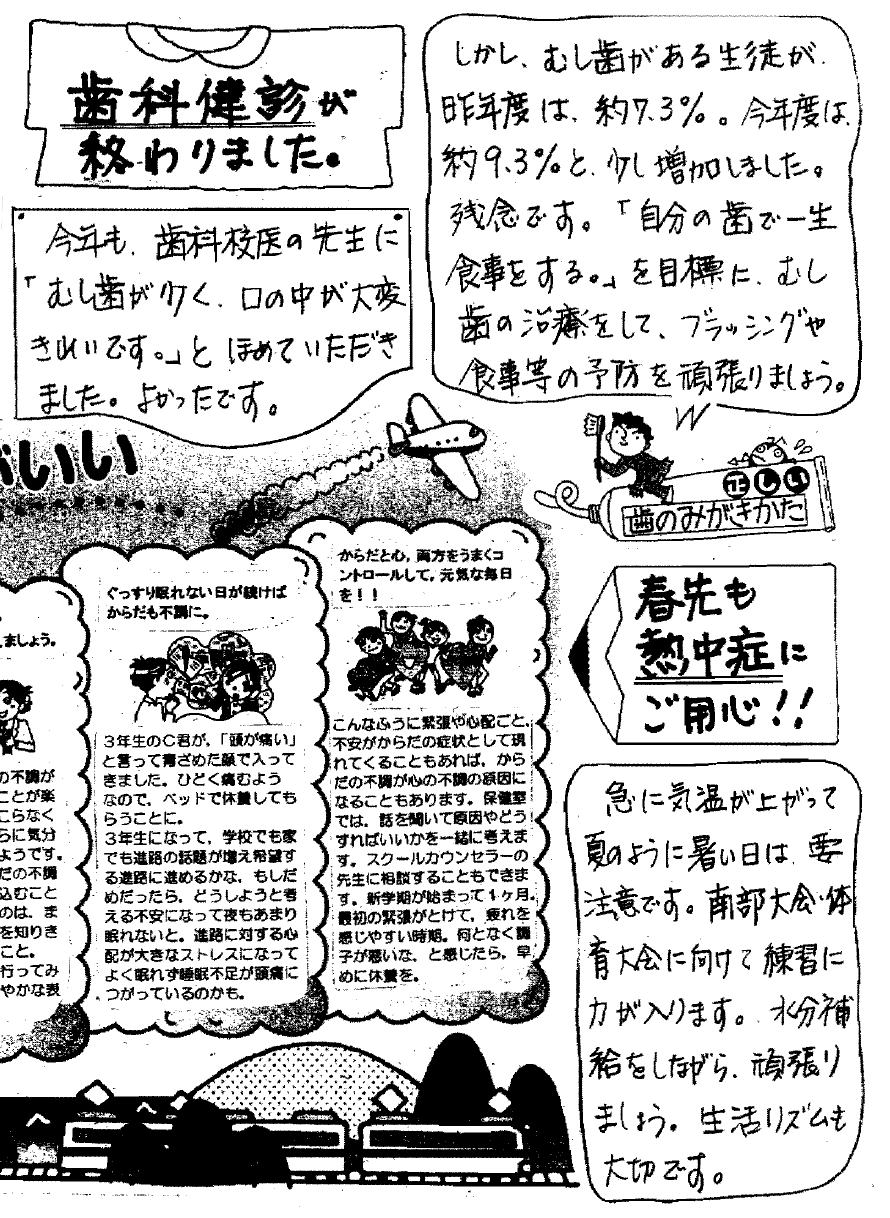 歯科健診が
終わりました。
今年も、歯科校医の先生に
「むし歯が少く、口の中が大変
きれいです。」と ほめていただき
ました。よかったです。
しかし、むし歯がある生徒が、
昨年度は、約7.3%。今年度は、
約9.3%と、少し増加しました。
残念です。「自分の歯で一生
食事をする。」を目標に、むし
歯の治療をして、ブラッシングや
食事等の予防を頑張りましょう。
ただしい
歯のみがきかた
いい
からだと心，両方をうまくコ
ントロールして，元気な毎日
を！！
こんなふうに緊張や心配ごと，
不安がからだの症状として現
れてくることもあれば，から
だの不調が心の不調の原因に
なることもあります。保健室
では，話を聞いて原因やどう
すればいいかを一緒に考えま
す。スクールカウンセラーの
先生に相談することもできま
す。新学期が始まって１ヶ月。
最初の緊張がとけて，疲れを
感じやすい時期。何となく調
子が悪いな，と感じたら，早
めに休養を。
ぐっすり眠れない日が続けば
からだも不調に。
３年生のＣ君が，「頭が痛い」
と言って青ざめた顔で入って
きました。ひどく痛むよう
なので，ベッドで休養しても
らうことに。
３年生になって，学校でも家
でも進路の話題が増え希望す
る進路に進めるかな，もしだ
めだったら，どうしようと考
える不安になって夜もあまり
眠れないと。進路に対する心
配が大きなストレスになって
よく眠れず睡眠不足が頭痛に
つがっているのかも。
ましょう。
の不調が
ことが楽
こらなく
らに気分
ようです。
だの不調
込むこと
のは，ま
を知りき
こと。
行ってみ
やかな表
春先も
熱中症に
ご用心!!
急に気温が上がって
夏のように暑い日は、要
注意です。南部大会・体
育大会に向けて練習に
力が入ります。水分補
給をしながら、頑張り
ましょう。生活リズムも
大切です。